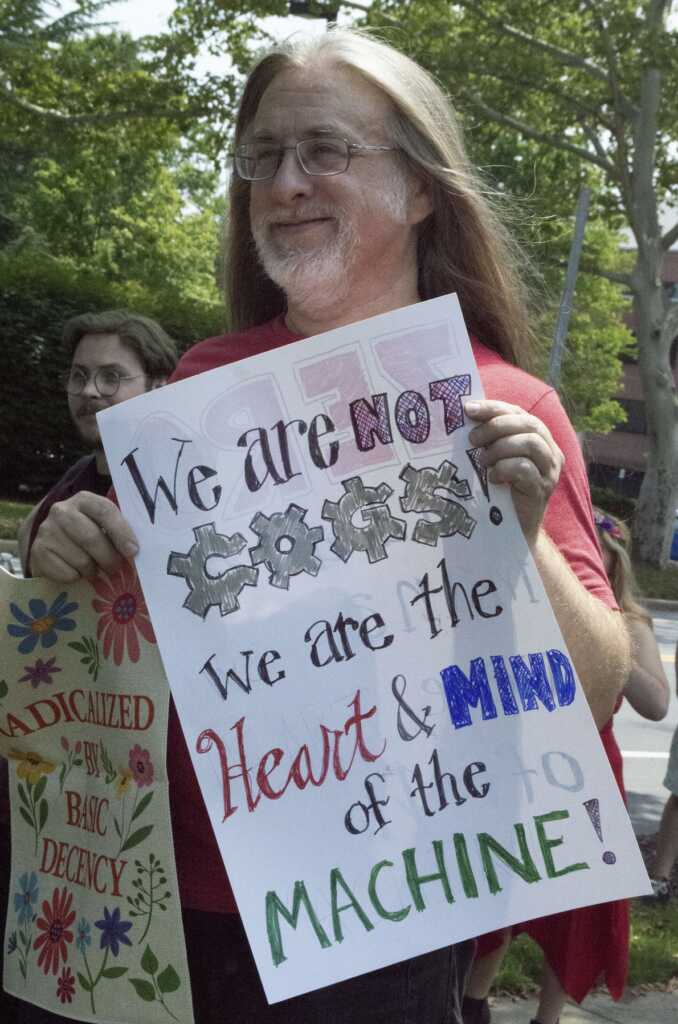 We are NOT
COGS!
We are the
Heart & MIND
of the
MACHINE!
RADICALIZED
BY
BASIC
DECENCY
ZERO